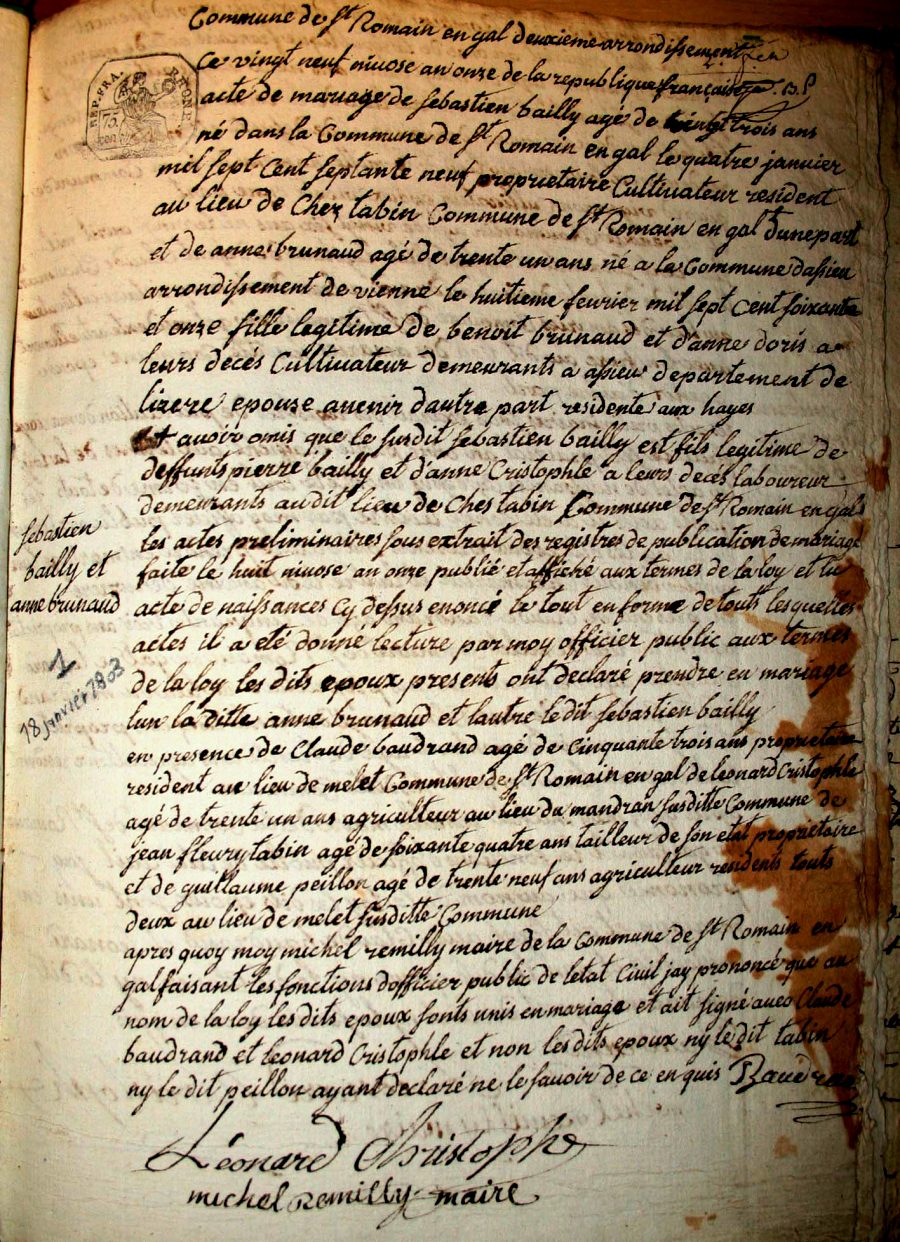 Commune de St Romain en gal deuxieme arrondissement
REP. FRA.
75.
Ce vingt neuf nivose an onze de la republique française
acte de mariage de sebastien bailly agé de vingt trois ans
né dans la Commune de St Romain en gal le quatre janvier
mil sept Cent septante neuf proprietaire Cultivateur resident
au lieu de Chez tabin Commune de St Romain en gal dune part
et de anne brunaud agé de trente un ans né a la Commune dassieu
arrondissement de vienne le huitieme fevrier mil sept Cent soixante
et onze fille legitime de benoit brunaud et d'anne doris a
leurs decés Cultivateur demeurants a assieu departement de
lizere epouse avenir dautre part residente aux hayes
et avoir omis que le susdit sebastien bailly est fils legitime de
deffunts pierre bailly et d'anne Cristophle a leurs decés laboureur
demeurants audit lieu de Ches tabin Commune de St Romain en gal
les actes preliminaires sous extrait des registres de publication de mariage
faite le huit nivose an onze publié et affiché aux termes de la loy et lu
acte de naissances Cy dessus enoncé le tout en forme de touts lesquelles
actes il a eté donné lecture par moy officier public aux termes
de la loy les dits epoux presents ont declaré prendre en mariage
lun la ditte anne brunaud et lautre ledit sebastien bailly
en presence de Claude baudrand agé de Cinquante trois ans proprietaire
resident au lieu de melet Commune de St Romain en gal de leonard Cristophle
agé de trente un ans agriculteur au lieu du mandran susditte Commune de
jean fleury tabin agé de soixante quatre ans tailleur de son etat proprietaire
et de guillaume peillon agé de trente neuf ans agriculteur residents touts
deux au lieu de melet susditte Commune
apres quoy moy michel remilly maire de la Commune de St Romain en
gal faisant les fonctions dofficier public de letat Civil jay prononcé que au
nom de la loy les dits epoux sonts unis en mariage et ait signé avec Claude
baudrand et leonard Cristophle et non les dits epoux ny le dit tabin
ny le dit peillon ayant declaré ne le savoir de ce en quis Baudran
Léonard Christophe
michel Remilly maire
sebastien
bailly et
anne brunaud
1
18 janvier 1803